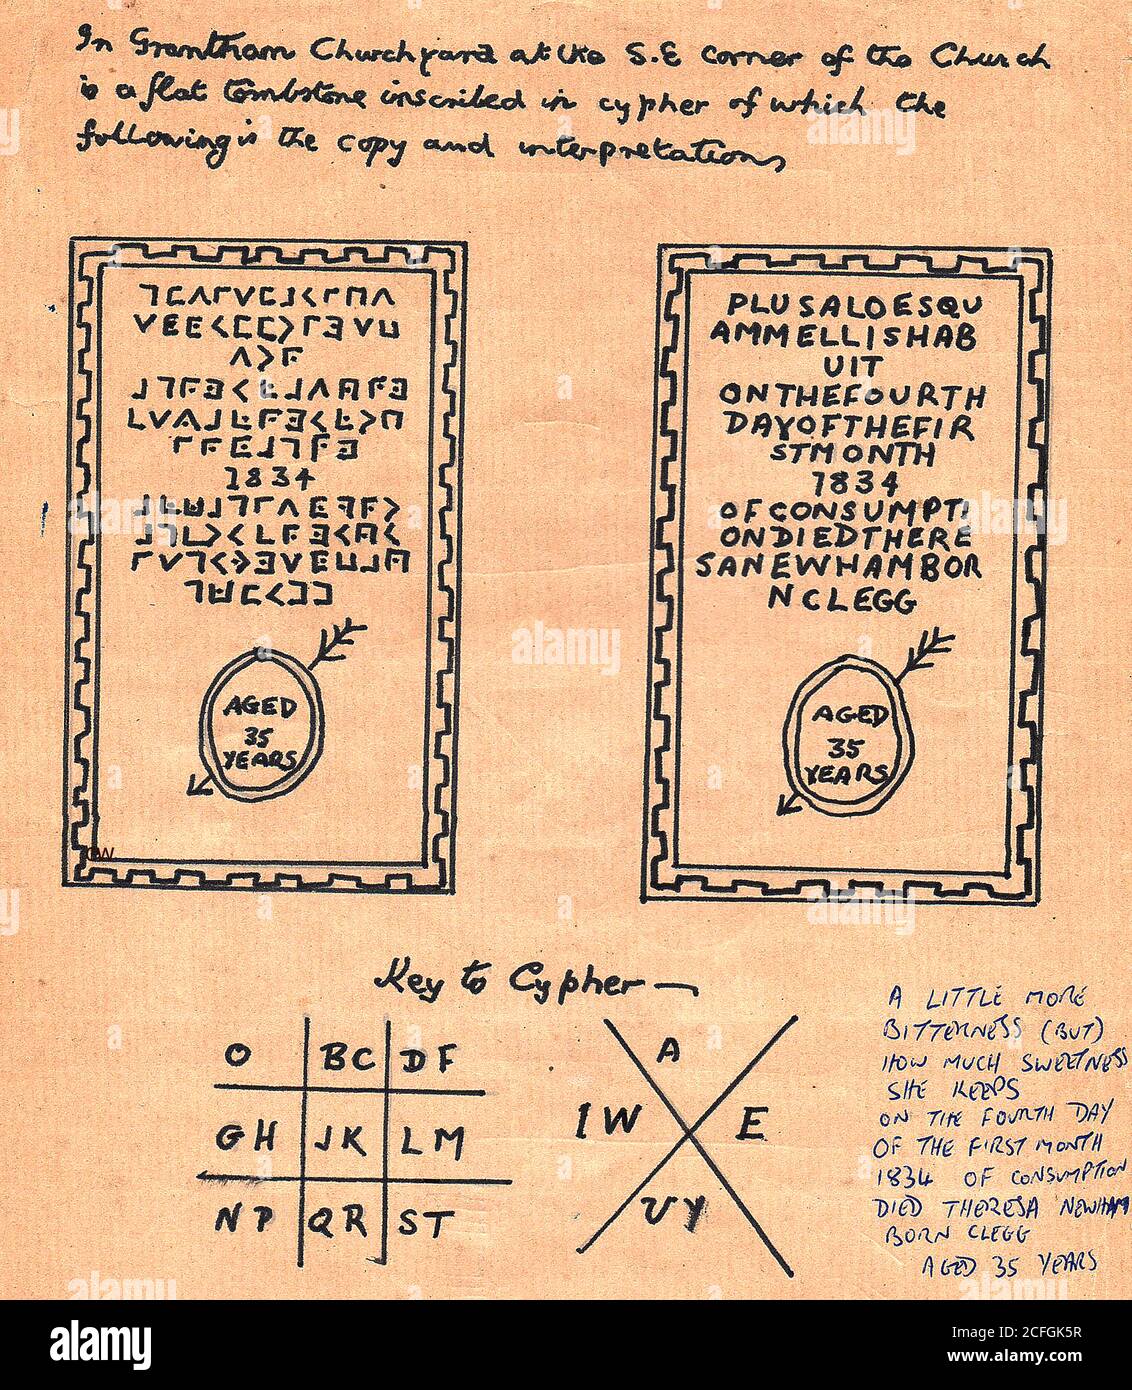 In Grantham Churchyard at the S.E corner of the Church
is a flat tombstone inscribed in cypher of which the
following is the copy and interpretations
1834
AGED
35
YEARS
PLUSALOESQU
AMMELLISHAB
UIT
ONTHEFOURTH
DAYOFTHEFIR
STMONTH
1834
OFCONSUMPTI
ONDIEDTHERE
SANEWHAMBOR
NCLEGG
AGED
35
YEARS
Key to Cypher
O BC DF
GH JK LM
NP QR ST
A
IW E
UY
A LITTLE MORE
BITTERNESS (BUT)
HOW MUCH SWEETNESS
SHE KEEPS
ON THE FOURTH DAY
OF THE FIRST MONTH
1834 OF CONSUMPTION
DIED THERESA NEWHAM
BORN CLEGG
AGED 35 YEARS
alamy
Image ID: 2CFGK5R
www.alamy.com